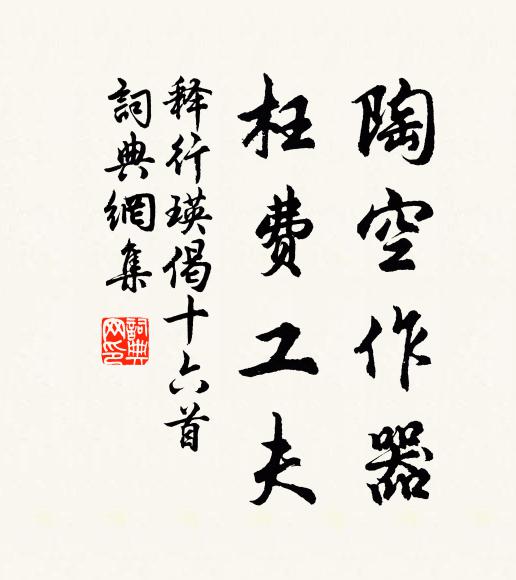 陶空作器
枉费工夫
释行瑛偈十六首
詞典網集
詞典网印